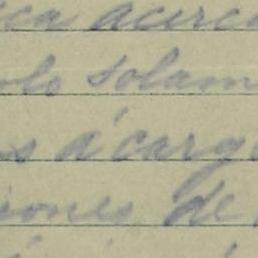 ica acerca
olo solam
s á carg
iones de